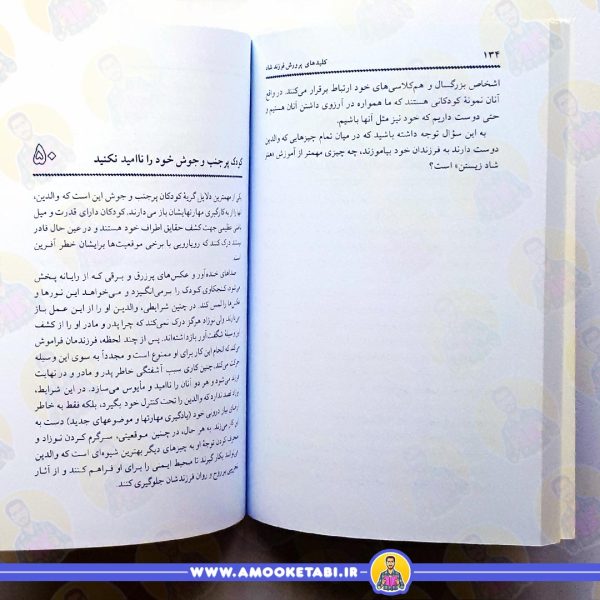 ۱۳۴
کلیدهای پرورش فرزند شاد
اشخاص بزرگسال و هم‌کلاسی‌های خود ارتباط برقرار می‌کنند. در واقع
آنان نمونهٔ کودکانی هستند که ما همواره در آرزوی داشتن آنان هستیم و
حتی دوست داریم که خود نیز مثل آنها باشیم.
به این سؤال توجه داشته باشید که در میان تمام چیزهایی که والدین
دوست دارند به فرزندان خود بیاموزند، چه چیزی مهمتر از آموزش «هنر
شاد زیستن» است؟
۵۰
کودک پرجنب و جوش خود را ناامید نکنید
یکی از مهمترین دلایل گریهٔ کودکان پرجنب و جوش این است که والدین،
آنها را از به کارگیری مهارتهایشان باز می‌دارند. کودکان دارای قدرت و میل
عظیمی جهت کشف حقایق اطراف خود هستند و در عین حال قادر
نیستند درک کنند که رویارویی با برخی موقعیت‌ها برایشان خطر آفرین
است.
صداهای خنده‌آور و عکس‌های پرزرق و برقی که از رایانه پخش
می‌شود، کنجکاوی کودک را برمی‌انگیزد و می‌خواهد این نورها و
عکس‌ها را لمس کند. در چنین شرایطی، والدین او را از این عمل باز
می‌دارند. ولی نوزاد هرگز درک نمی‌کند که چرا پدر و مادر او را از کشف
این وسیلهٔ شگفت‌آور بازداشته‌اند. پس از چند لحظه، فرزندمان فراموش
می‌کند که انجام این کار برای او ممنوع است و مجدداً به سوی این وسیله
حرکت می‌کند. چنین کاری سبب آشفتگی خاطر پدر و مادر و در نهایت
می‌شود و هر دو آنان را ناامید و مأیوس می‌سازد. در این شرایط،
نوزاد قصد ندارد که والدین را تحت کنترل خود بگیرد، بلکه فقط به خاطر
درونی خود (یادگیری مهارتها و موضوعهای جدید) دست به
این کار می‌زند. به هر حال، در چنین موقعیتی، سرگرم کردن نوزاد و
منحرف کردن توجهٔ او به چیزهای دیگر بهترین شیوه‌ای است که والدین
می‌توانند بکار گیرند تا محیط ایمنی را برای او فراهم کنند و از آثار
تخریبی بر روح و روان فرزندشان جلوگیری کنند.
WWW.AMOOKETABI.IR